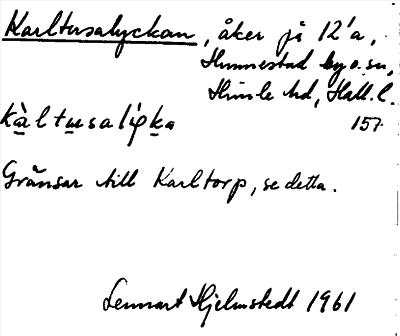 Karltusalyckan, åker på 12'a,
Hunnestad by o. sn,
Himle hd, Hall. l.
kàltusalíka
157.
Gränsar till Karltorp, se detta.
Lennart Hjelmstedt 1961